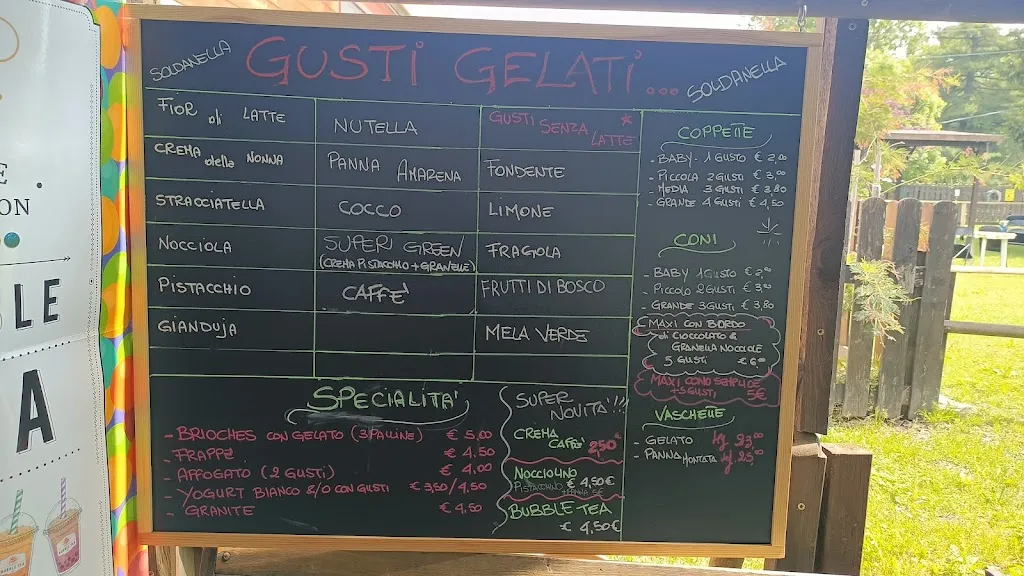 SOLDANELLA
GUSTI GELATI...
SOLDANELLA
FIOR di LATTE
CREMA della NONNA
STRACCIATELLA
NOCCIOLA
PISTACCHIO
GIANDUJA
NUTELLA
PANNA AMARENA
COCCO
SUPER GREEN
(CREMA PISTACCHIO + GRANELLE)
CAFFE'
GUSTI SENZA LATTE *
FONDENTE
LIMONE
FRAGIOLA
FRUTTI DI BOSCO
MELA VERDE
COPPETTE
- BABY - 1 GUSTO € 2,00
- PICCOLA 2 GUSTI € 3,00
- MEDIA 3 GUSTI € 3,80
- GRANDE 4 GUSTI € 4,50
CONI
- BABY 1 GUSTO € 2,00
- PICCOLO 2 GUSTI € 3,00
- GRANDE 3 GUSTI € 3,80
MAXI CON BORDO
di CIOCCOLATO &
GRANELLA NOCCIOLE
5 GUSTI € 6,00
MAXI CONO SEMPLICE
5 GUSTI 5€
VASCHETTE
- GELATO kg 23,00
- PANNA MONTATA kg 25,00
SPECIALITA'
- BRIOCHES CON GELATO (3 PALLINE) € 5,00
- FRAPPÈ € 4,50
- AFFOGATO (2 GUSTI) € 4,00
- YOGURT BIANCO E/O CON GUSTI € 3,50/4,50
- GRANITE € 4,50
SUPER
NOVITA'!!!
CREMA
CAFFE' 2,50€
NOCCIOLINO
PISTACCHINO € 4,50€
+ PANNA 5€
BUBBLE TEA
€ 4,50€
E.
ON
LE
A